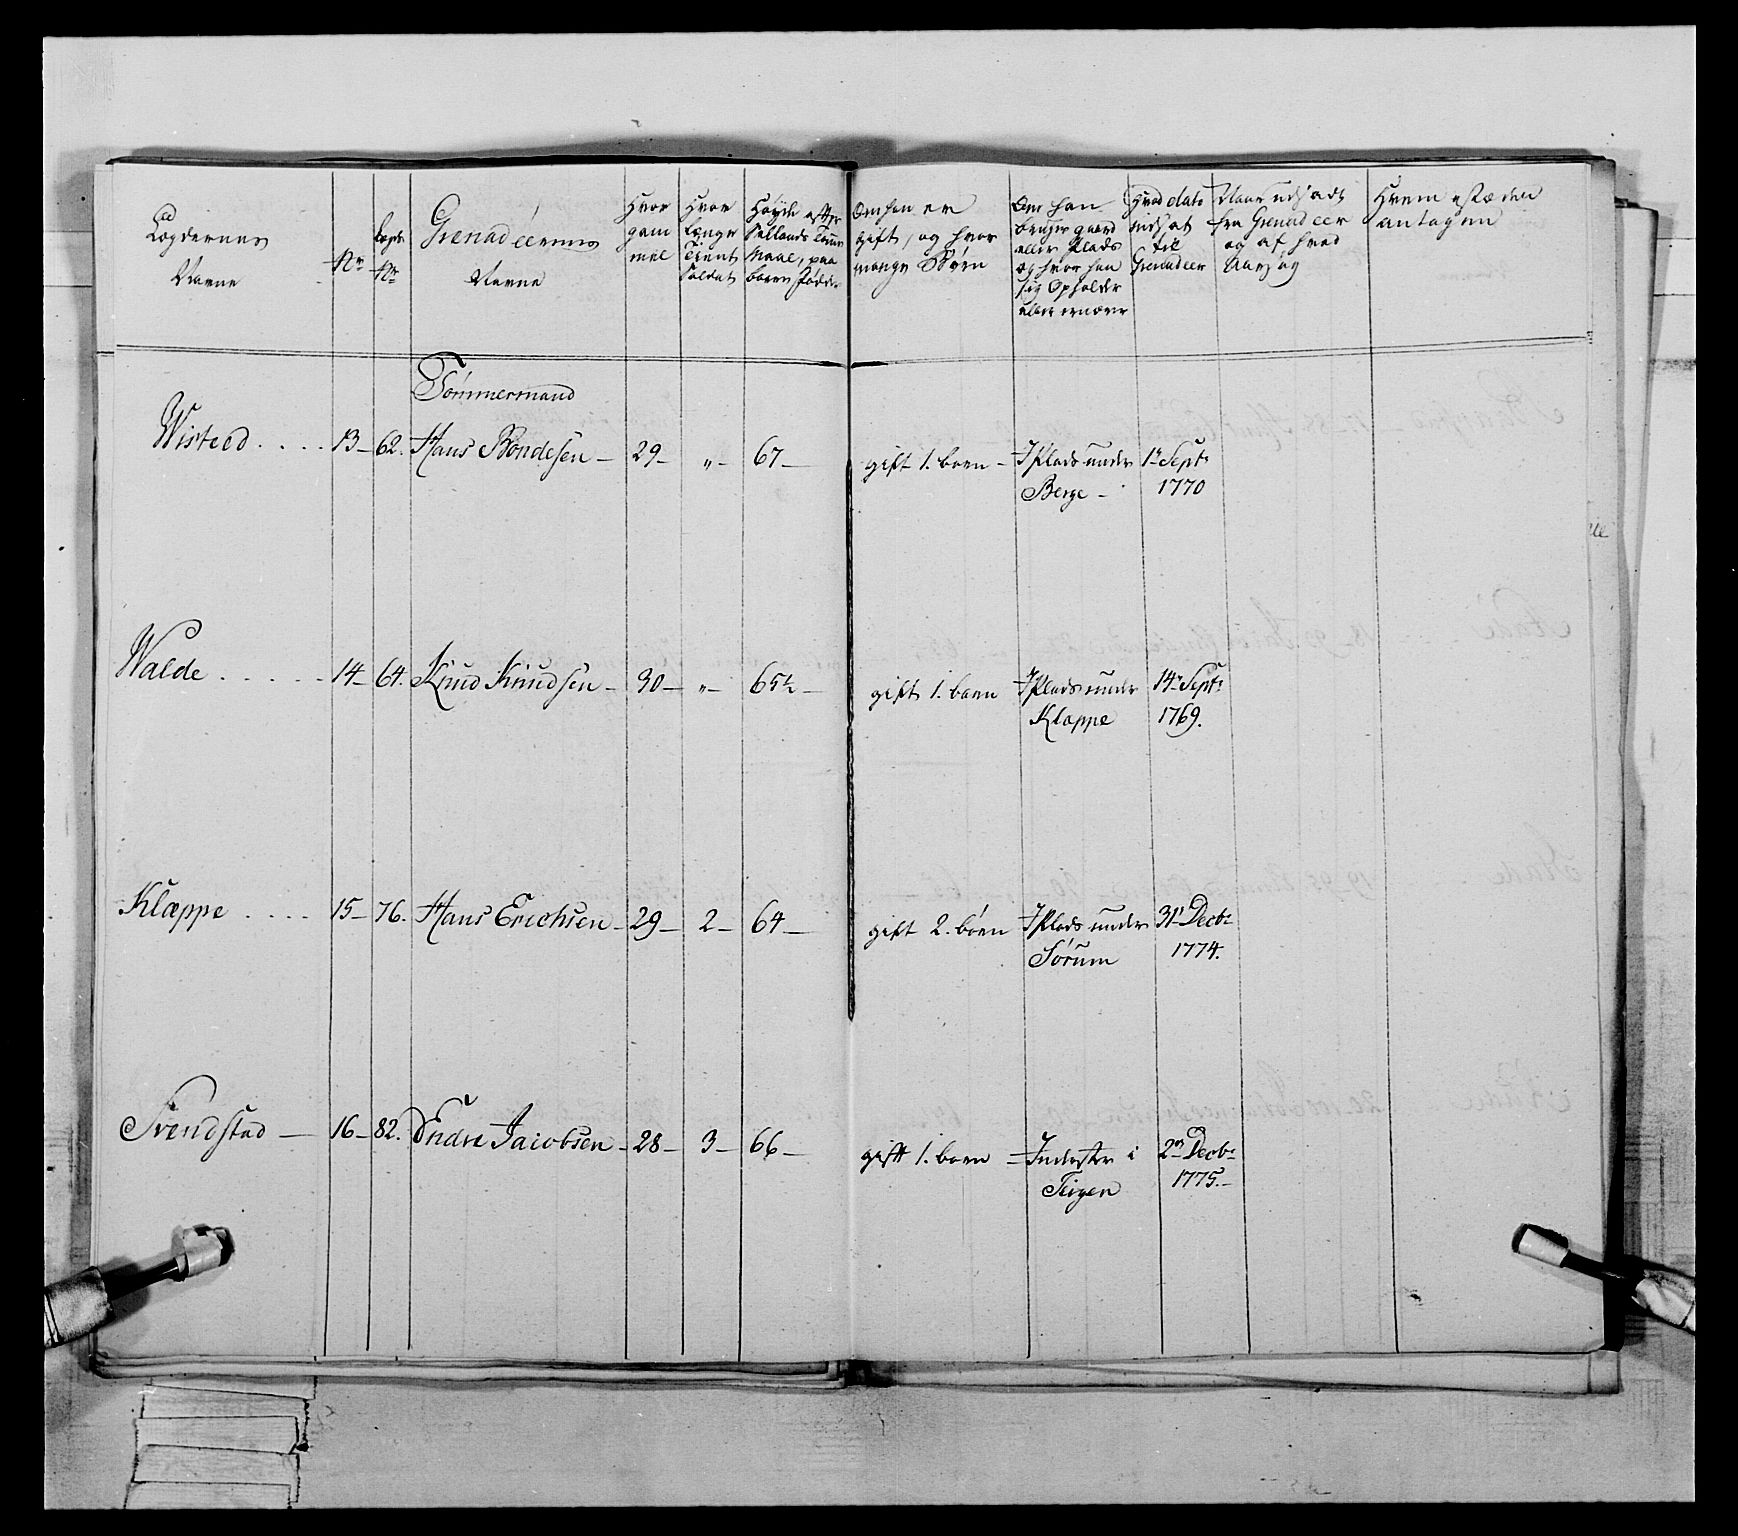 Lægdernes Navne
No
Lægds No
Grenadeernes Navne
Hvor gammel
Hvor længe Tient Soldat
Høyde efter Sællands Tomme Maal, paa baere Fødder
Om han er gift, og hvor mange Børn
Om han bruger gaard eller Plads og hvor han sig Opholder eller ernærer
Hvad dato udsat til Grenadeer
Naar udsadt fra Grenadeer og af hvad Aarsag
Hvem i Stæden antagen
Tømmermand
Wisteed . . . . 13 – 62. Hans Bondesen – 29 – „ – 67 – gift 1. barn – I Plads under 1te Septr
Berge – 1770
Walde . . . . . 14 – 64. Knud Knudsen – 30 – „ – 65½ – gift 1. barn I Plads under 14de Septr
Klæppe 1769.
Klæppe . . . . 15 – 76. Hans Erichsen – 29 – 2 – 64 – gift 2. børn I Plads under 31te Decbr
Sørum 1774.
Svendstad – 16 – 82. Endre Jacobsen – 28 – 3 – 66 – gift 1. barn – Inderster i 2den Decbr
Teigen 1775. –